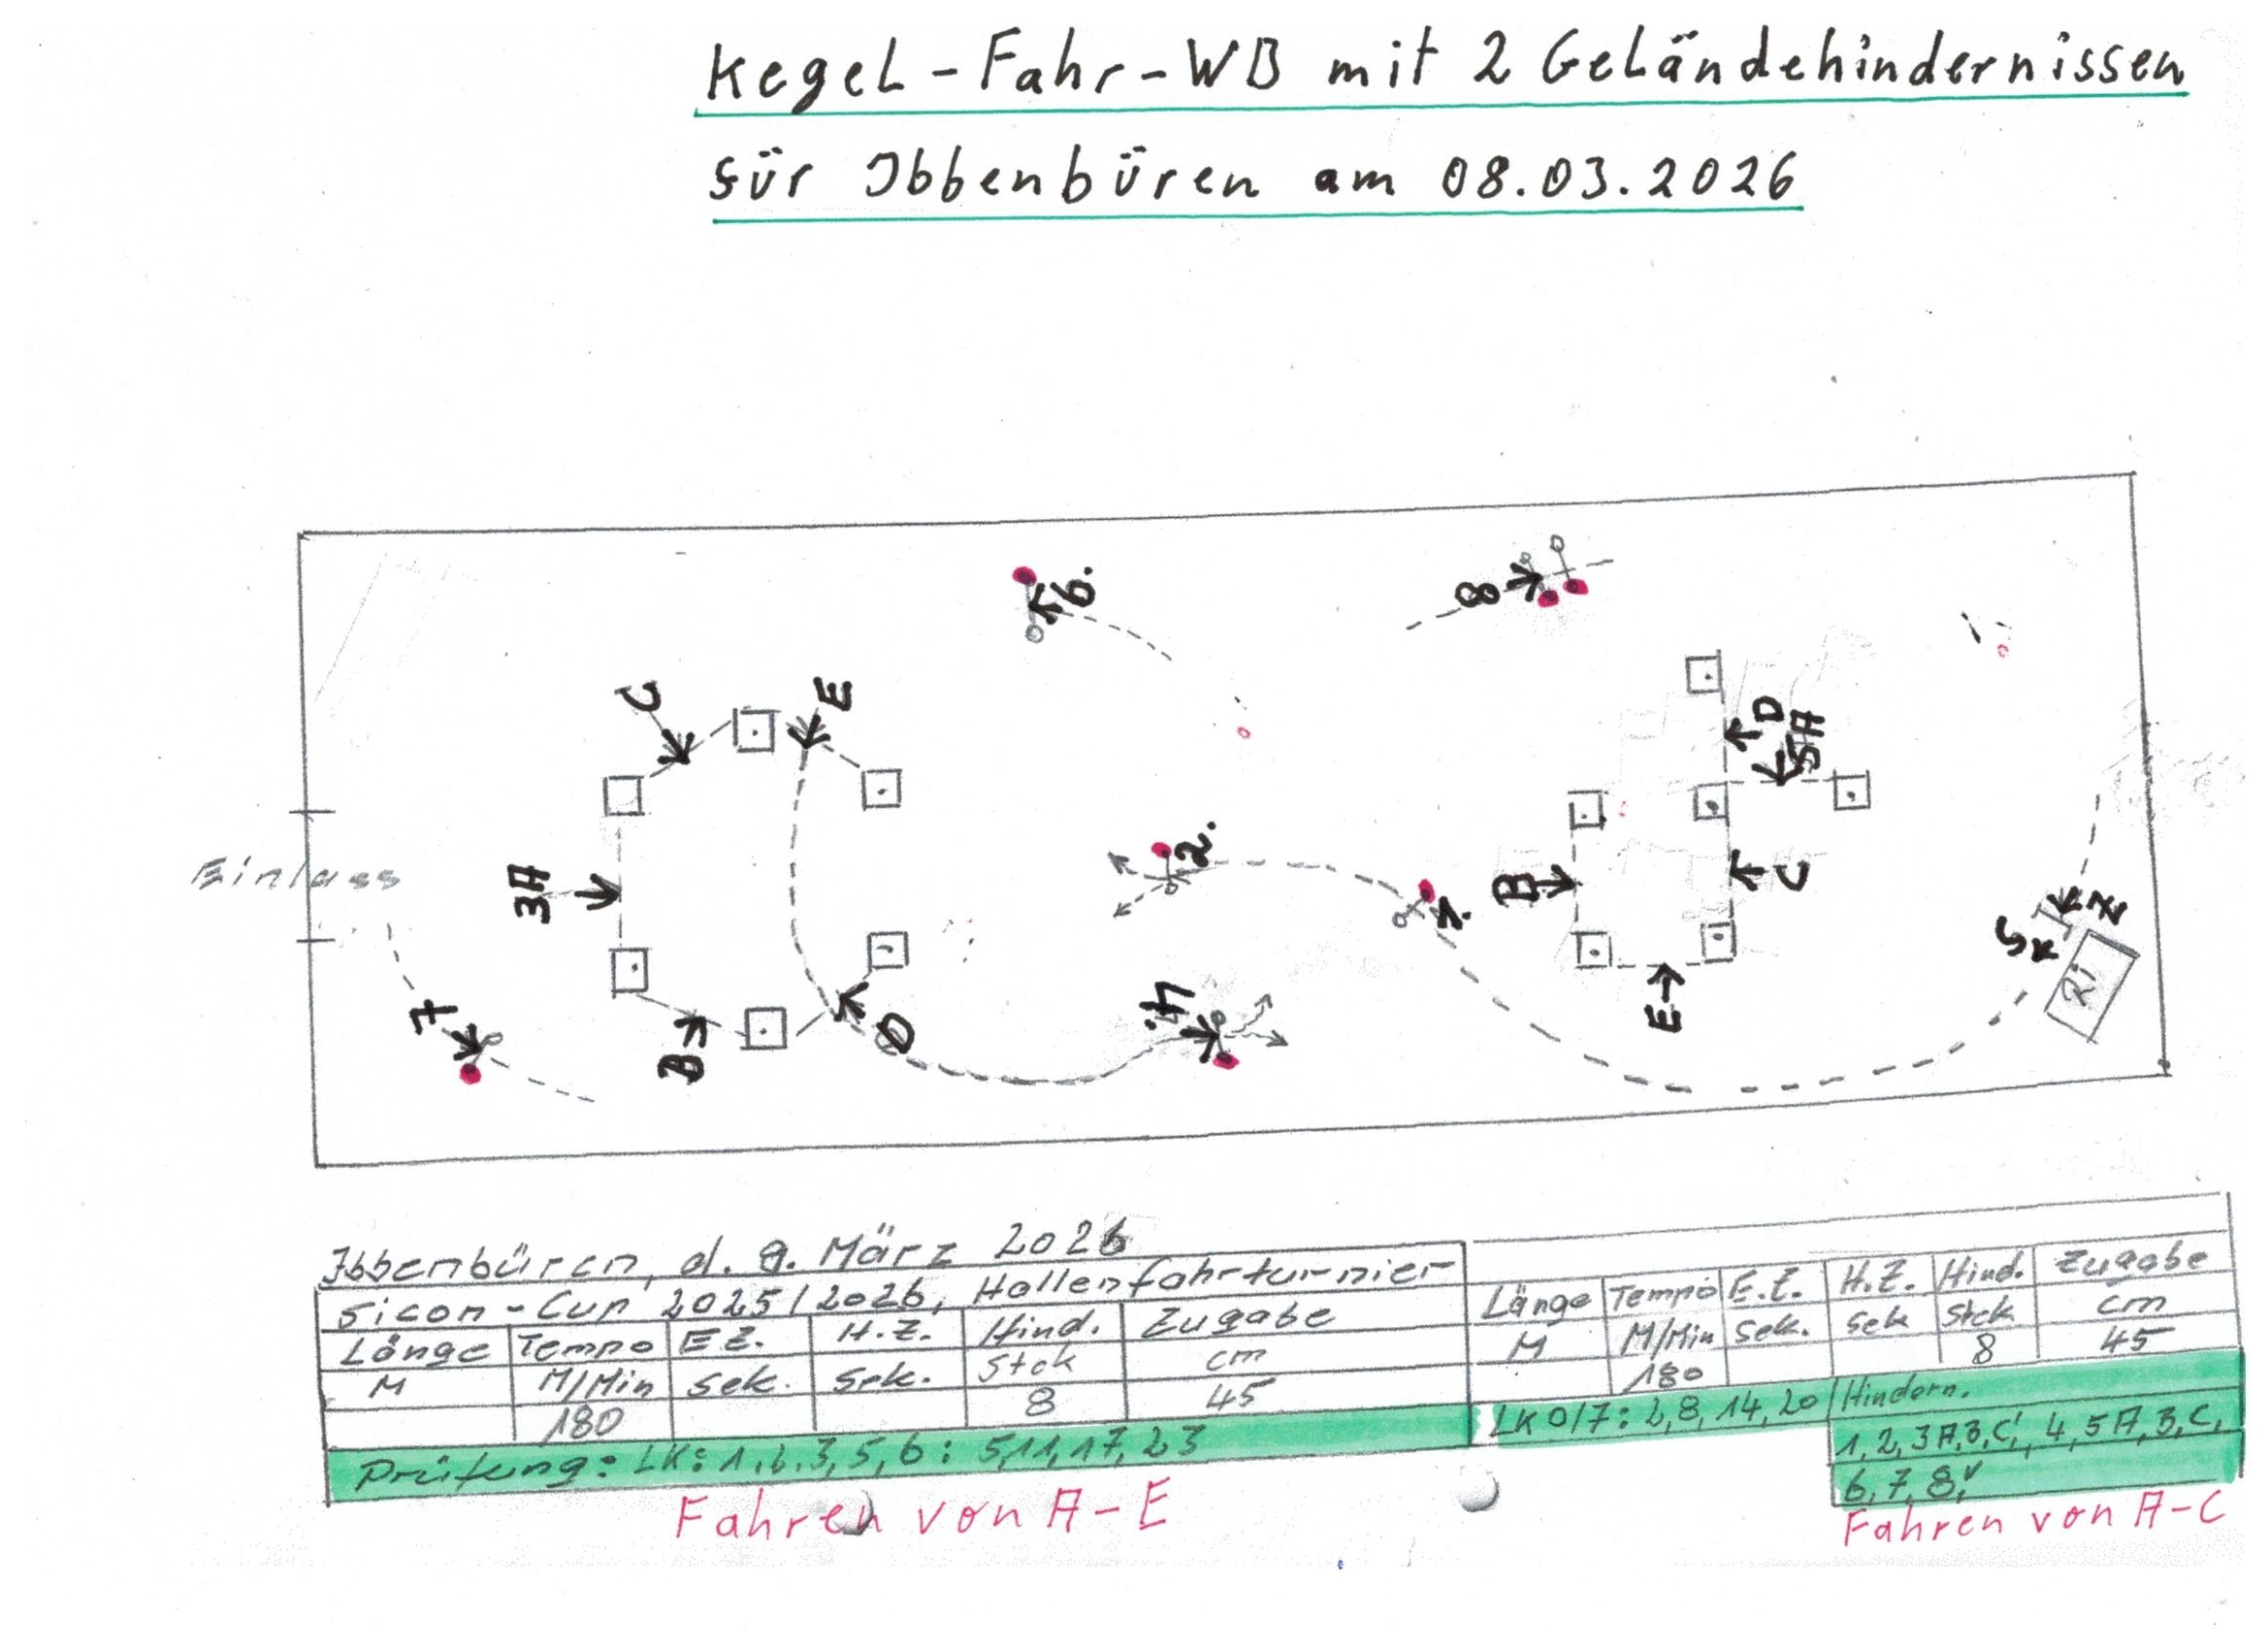 Kegel-Fahr-WB mit 2 Geländehindernissen
für Ibbenbüren am 08.03.2026
6.
8
C
E
D
5A
2.
Einlass
3A
B
C
1.
S
Z
4.
E
Ri
7
B
D
Ibbenbüren, d. 8. März 2026
Sicon-Cup 2025/2026, Hallenfahrturnier
Länge Tempo E.Z. H.Z. Hind. Zugabe
M M/Min Sek. Sek. Stck cm
180 8 45
Prüfung: LK: 1, 2, 3, 5, 6: 5, 11, 17, 23
Fahren von A-E
Länge Tempo E.Z. H.Z. Hind. Zugabe
M M/Min Sek. Sek Stck cm
180 8 45
LK 0/7: 2, 8, 14, 20 Hindern.
1, 2, 3A, B, C, 4, 5A, B, C,
6, 7, 8,
Fahren von A-C